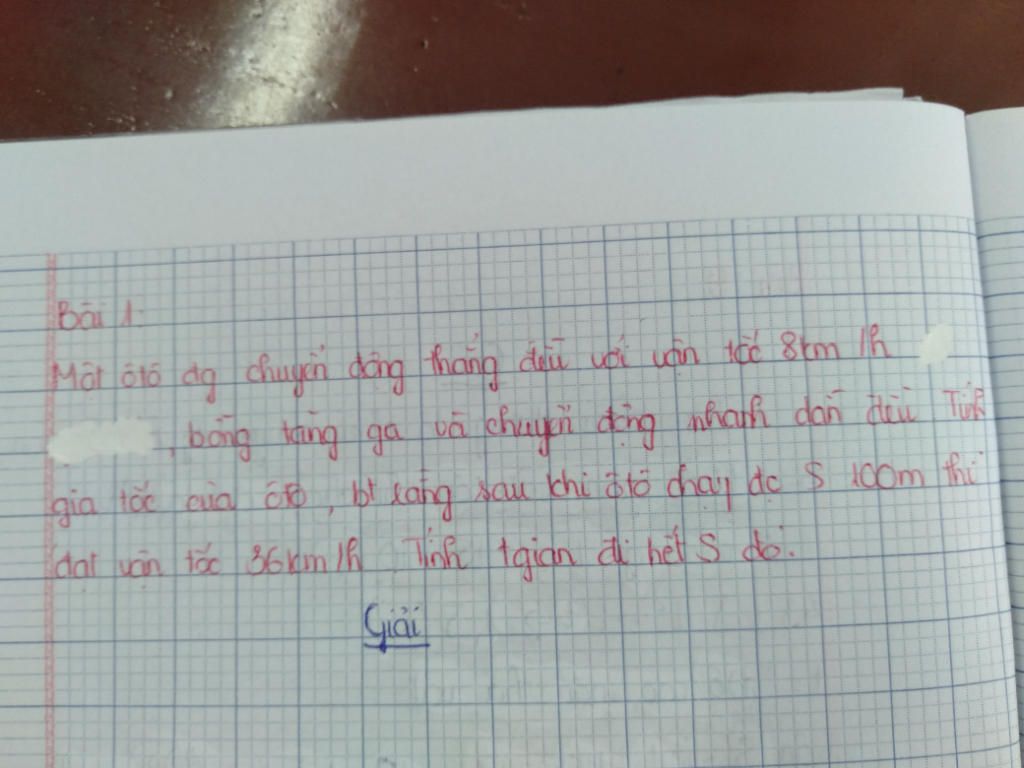 Bài 1:
Một ôtô đg chuyển động thẳng đều với vận tốc 8km/h
, bỗng tăng ga và chuyển động nhanh dần đều Tính
gia tốc của ôtô, bt rằng sau khi ôtô chạy đc S 100m thì
đạt vận tốc 36km/h Tính tgian đi hết S đó.
Giải